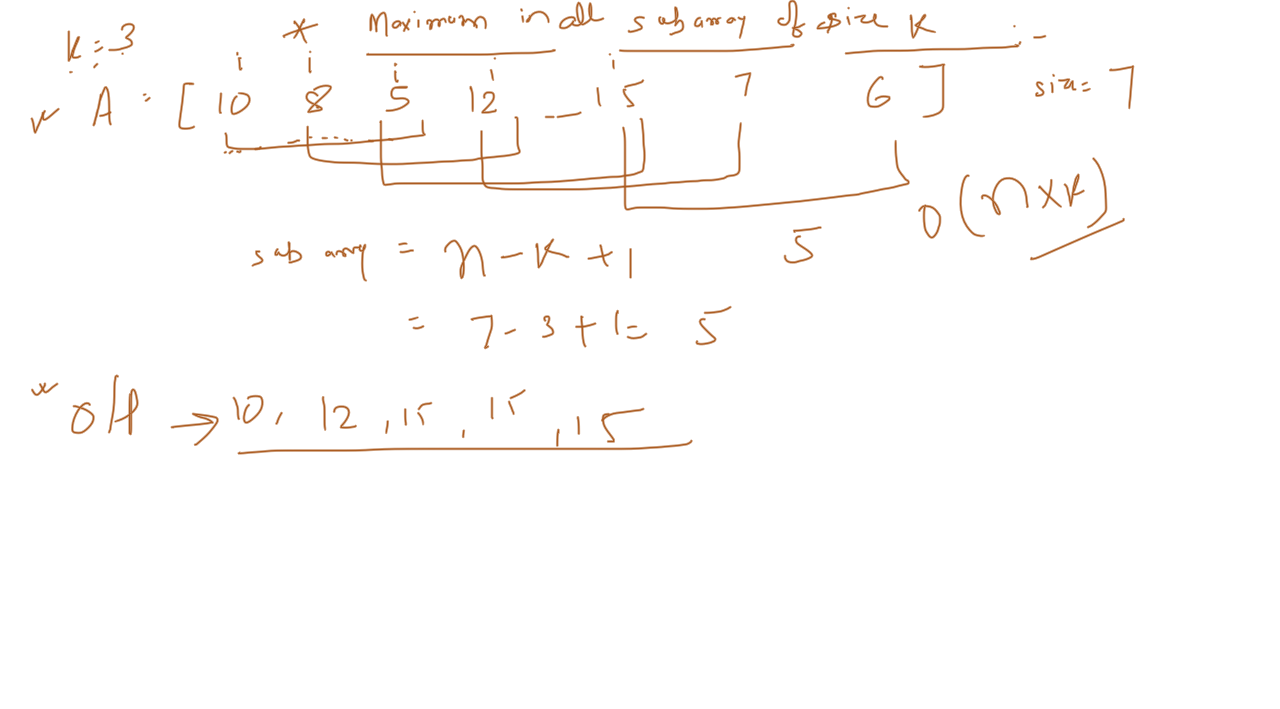 K = 3
* Maximum in all sub array of size K :-
i i i i i
A = [ 10 8 5 12 15 7 6 ] size = 7
O(n×K)
sub array = n - K + 1 5
= 7 - 3 + 1 = 5
O/P → 10, 12, 15, 15, 15